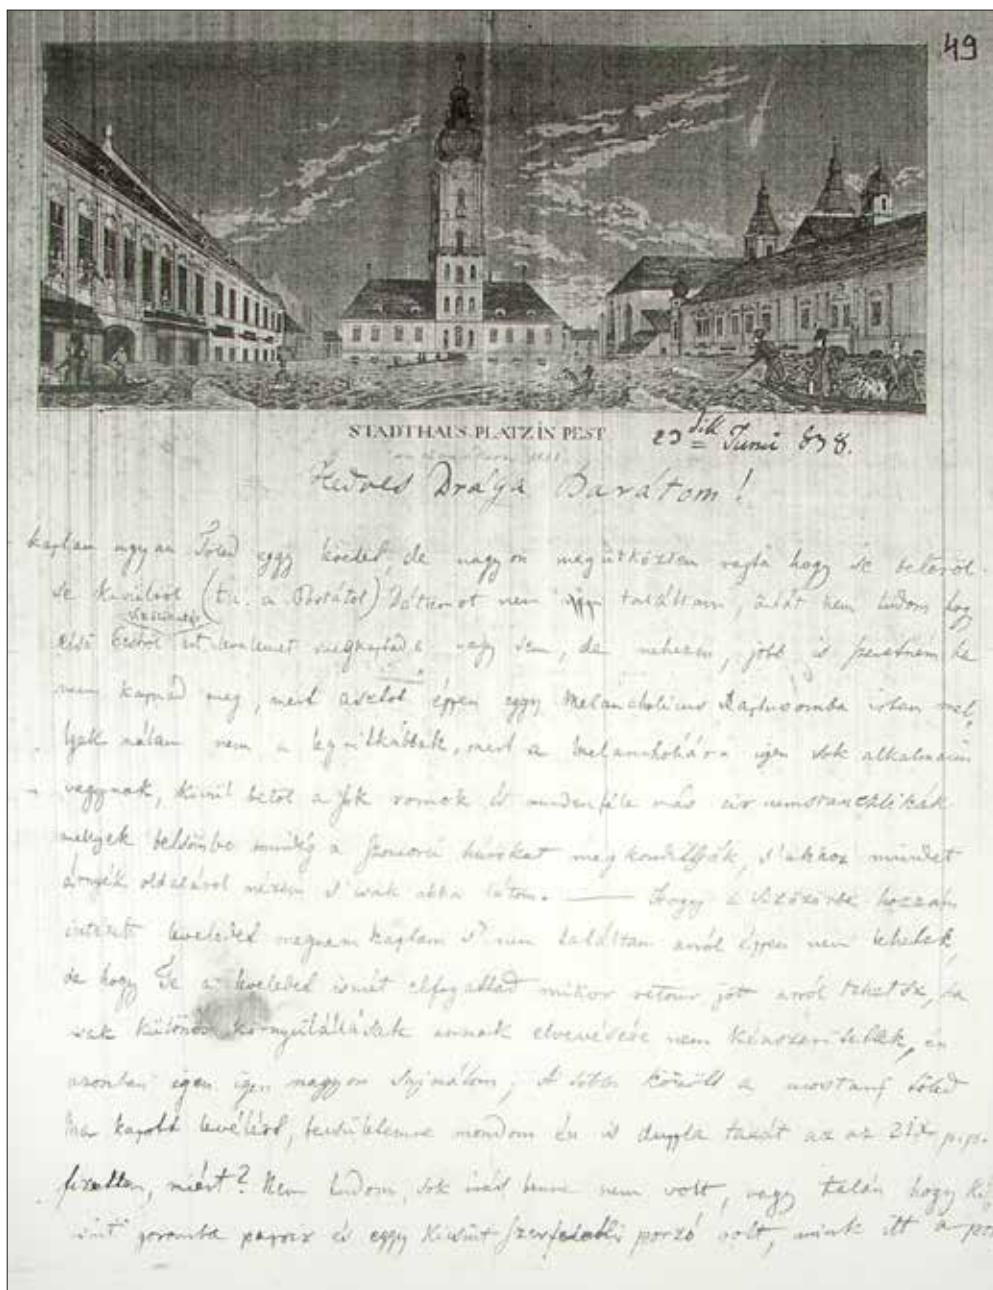 49
STADTHAUS-PLATZ IN PEST
23 dik Junii 838.
Kedves Drága Barátom!
Kaptam ugyan Tőled eggy leveled, de nagyon megütköztem rajta hogy se belőröl
se kivülröl (t.i. a Postától) Dátumot nem találtam, tehát nem tudom hogy
első levelemet megkaptad e vagy sem, de nehezen, jobb is szeretném ha
nem kapnád meg, mert asztat éppen eggy Melancholicus Raptusomba irtam mel-
lyek nálam nem a legritkábbak, mert a Melancholiára igen sok alkalmaim
vagynak, kivül belöl a sok romok és mindenféle más
mellyek belsőmbe mindég a szomorú húrokat megkondittják, s akkor mindent
árnyék oldaláról nézem s csak abba látom. — Hogy a hozzám
intézett leveledet megnem kaptam s nem találtam arról éppen nem tehetek,
de hogy Te a leveledet ismét elfogattad mikor retour jött arról tehetsz, ha
csak különös környülállások annak elvevésére nem kénszeritettek, én
azonban igen igen nagyon sajnálom, A többi között a mostani tőled
Ma kapott levélért, becsületemre mondom én is dupla taxát az az 21x p.p.
fizettem, miért? Nem tudom, sok irás benne nem volt, vagy talán hogy ki
goromba papiros és eggy kicsint porzó volt, mink itt a